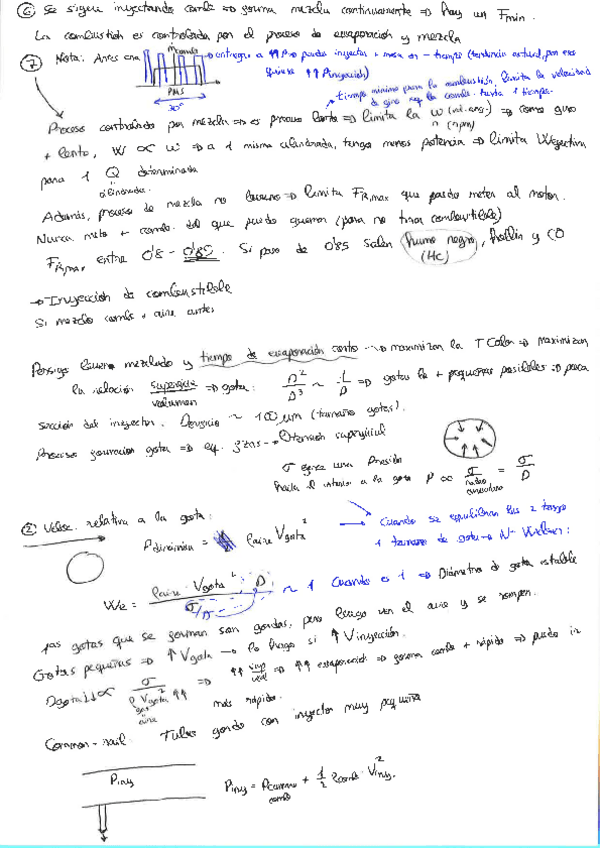 ⑥ Se sigue inyectando comb. ⇒ forma mezcla continuamente ⇒ hay un Fmin.
La combustión es controlada por el proceso de evaporación y mezcla
⑦ Nota: Antes era
entregas a ↑↑P puedes inyectar + masa en - tiempo (tendencia actual, por eso
quiero ↑↑ Pinyección)
PMS
30°
tiempo mínimo para la combustión, limita la velocidad
de giro
Proceso controlado por mezcla ⇒ es proceso lento ⇒ limita la ω (vel. ang.) ⇒ como giro
n (rpm)
+ lento, Ẇ ∝ ω ⇒ a 1 misma cilindrada, tengo menos potencia ⇒ limita Ẇefectiva
para 1 Q determinada
cilindrada.
Además, proceso de mezcla no bueno ⇒ limita FR,max que puedo meter al motor.
Nunca meto + comb. del que puedo quemar (para no tirar combustible)
FR,max entre 0'8 - 0'85. Si paso de 0'85 salen humo negro, hollín y CO
(HC)
→ Inyección de combustible
Si mezclo comb + aire antes
Persigo buen mezclado y tiempo de evaporación corto → maximizar la T Calor ⇒ maximizar
la relación superficie/volumen ⇒ gota: D²/D³ ~ 1/D ⇒ gotas lo + pequeñas posibles ⇒ poca
sección del inyector. Diámetro ~ 100 μm (tamaño gotas).
Proceso formación gota ⇒ eq. fzas → ① tensión superficial
σ ejerce una Presión
hacia el interior a la gota P ∝ σ/radio curvatura = σ/D
② Veloc. relativa a la gota:
Cuando se equilibran las 2 tengo
1 tamaño de gota → Nº Weber:
Pdinámica = ρaire Vgota²
We = ρaire · Vgota² · D / σ ~ 1 Cuando es 1 ⇒ Diámetro de gota estable
Las gotas que se forman son gordas, pero luego ven el aire y se rompen.
Gotas pequeñas ⇒ ↑ Vgota → lo hago si ↑ Vinyección.
Dgota ↓↓ ∝ σ / ρ Vgota² ↑↑ ⇒ ↑↑ sup/vol ⇒ ↑↑ evaporación ⇒ forma comb + rápido ⇒ puedo ir
aire
más rápido.
Common-rail: Tubo gordo con inyector muy pequeño
Piny
Piny = Pcámara + 1/2 ρcomb · Viny²
comb